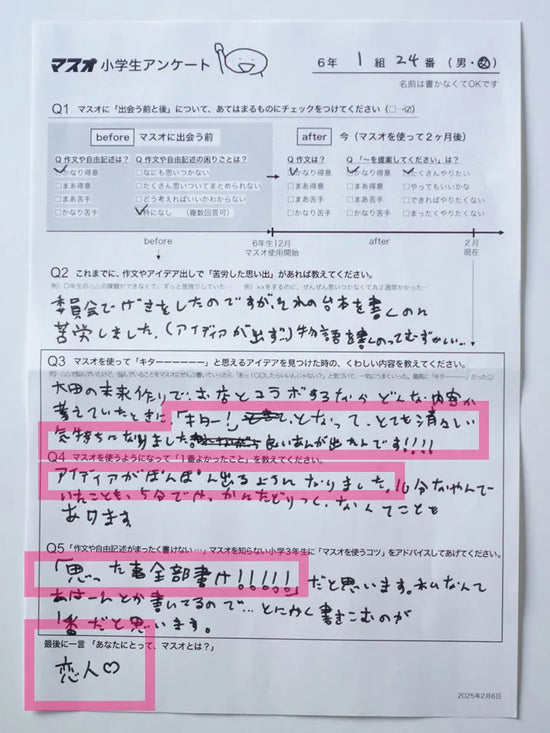 マスオ 小学生アンケート
6年 1 組 24 番 (男・女)
名前は書かなくてOKです
Q1 マスオに「出会う前と後」について、あてはまるものにチェックをつけてください(□→☑)
before マスオに出会う前
after 今(マスオを使って2ヶ月後)
Q 作文や自由記述は? Q 作文や自由記述の困りごとは? Q 作文は? Q 「〜を提案してください」は?
☑かなり得意 □なにも思いつかない ☑かなり得意 ☑かなり得意 ☑たくさんやりたい
□まあ得意 □たくさん思いついてまとめられない □まあ得意 □まあ得意 □やってもいいかな
□まあ苦手 □どう考えればいいかわからない □まあ苦手 □まあ苦手 □できればやりたくない
□かなり苦手 ☑特になし (複数回答可) □かなり苦手 □かなり苦手 □まったくやりたくない
before 6年生12月 after 2月
マスオ使用開始 現在
Q2 これまでに、作文やアイデア出しで「苦労した思い出」があれば教えてください。
委員会でげきをしたのですが、それの台本を書くのに
苦労しました。(アイディアが出ず。)物語を書くのってむずかしい…
Q3 マスオを使って「キターーーーーー」と思えるアイデアを見つけた時の、くわしい内容を教えてください。
の未来作りで、お店とコラボするなら どんな内容か
考えていたときに、「キター!」 となって、とても清々しい
気持ちになりました 良いあんが出たんです!!!!
Q4 マスオを使うようになって「1番よかったこと」を教えてください。
アイディアがぽんぽん出るようになりました。10分なやんで
いたことも、5分でや、かんたどりつく、なんてことも
あります
Q5 「作文や自由記述がまったく書けない…」マスオを知らない小学3年生に「マスオを使うコツ」をアドバイスしてあげてください。
「思った事全部書け!!!!!!」だと思います。私なんて
あはーんとか書いてるので…とにかく書きこむのが
1番だと思います。
最後に一言「あなたにとって、マスオとは?」
恋人♡
2025年2月6日